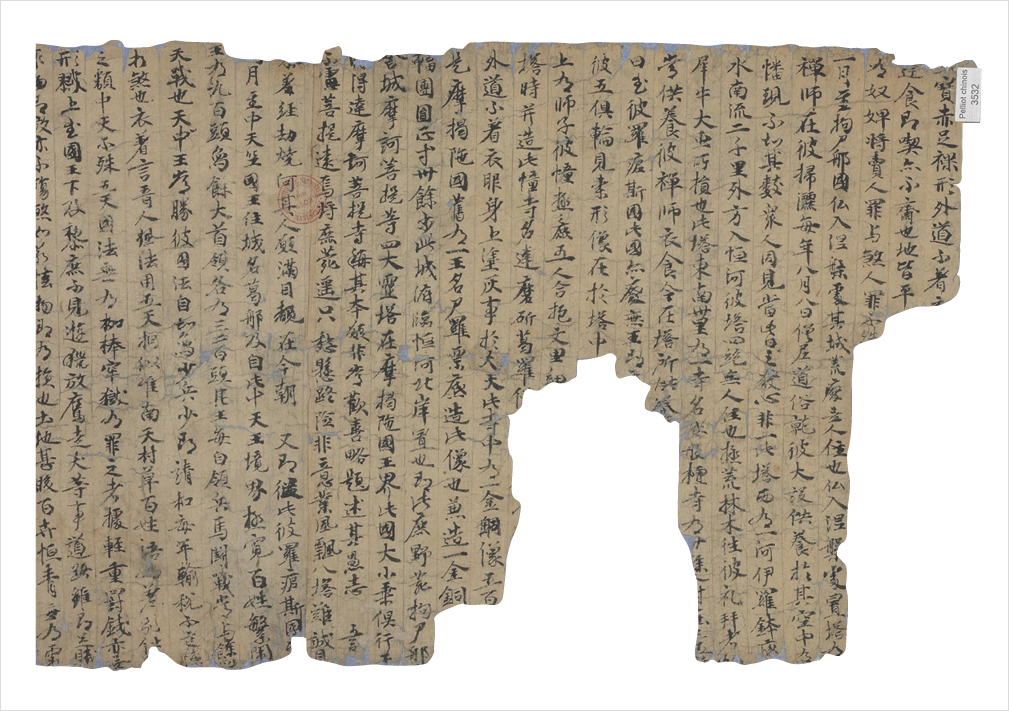 寶赤足裸形外道不著
逕食即喫亦不齋也地皆平
有奴婢將賣人罪与煞人罪
一月至拘尸那國仏入涅槃處其城荒廢無人住也仏入涅槃處置塔
禪師在彼掃灑每年八月八日僧尼道俗就彼大設供養於其空中有
幡現不知其數衆人同見當此之日發心非一此塔西有一河伊羅鉢底
水南流二千里外方入恒河彼塔四絶無人住也極荒林木往彼礼拜者
犀牛大虫所損也此塔東南卅里有一寺名娑般檀寺有
常供養彼禪師衣食令在塔所供養
日至彼羅痆斯國此國亦廢無王即
彼五俱輪見素形像在於塔中
上有師子彼幢極麁五人合抱文里細
塔時并造此幢寺名達磨斫葛羅
外道不著衣服身上塗灰事於大天此寺中有一金銅像五百
是摩揭陁國舊有一王名尸羅票底造此像也兼造一金銅
輻團圓正等卅餘步此城俯臨恒河北岸置也即此鹿野苑拘尸那
舍城摩訶菩提等四大靈塔在摩揭陁國王界此國大小乘俱行
得達摩訶菩提寺稱其本願非常歡喜略題述其愚志 五言
不慮菩提遠焉將鹿苑遥只愁懸路險非意業風飄八塔難誠見
參差經劫燒何其人願滿目覩在今朝 又即從此彼羅痆斯國
月至中天竺國王住城名葛那及自此中天王境界極寬百姓繁鬧
王有九百頭象餘大首領各有三二百頭其王每自領兵馬鬪戰常与餘
天戰也天中王常勝彼國法自知象少兵少即請和每年輸稅不交
相煞也衣著言音人風法用五天相似唯南天村草百姓語有差別
之類中天不殊五天國法無有枷棒牢獄有罪之者據輕重罰錢亦無
形戮上至國王下及黎庶不見遊獵放鷹走犬等事道路雖即足賊
取物即放亦不殤煞如若恡物即有損也土地甚暖百卉恒青無有霜
Pelliot chinois
3532